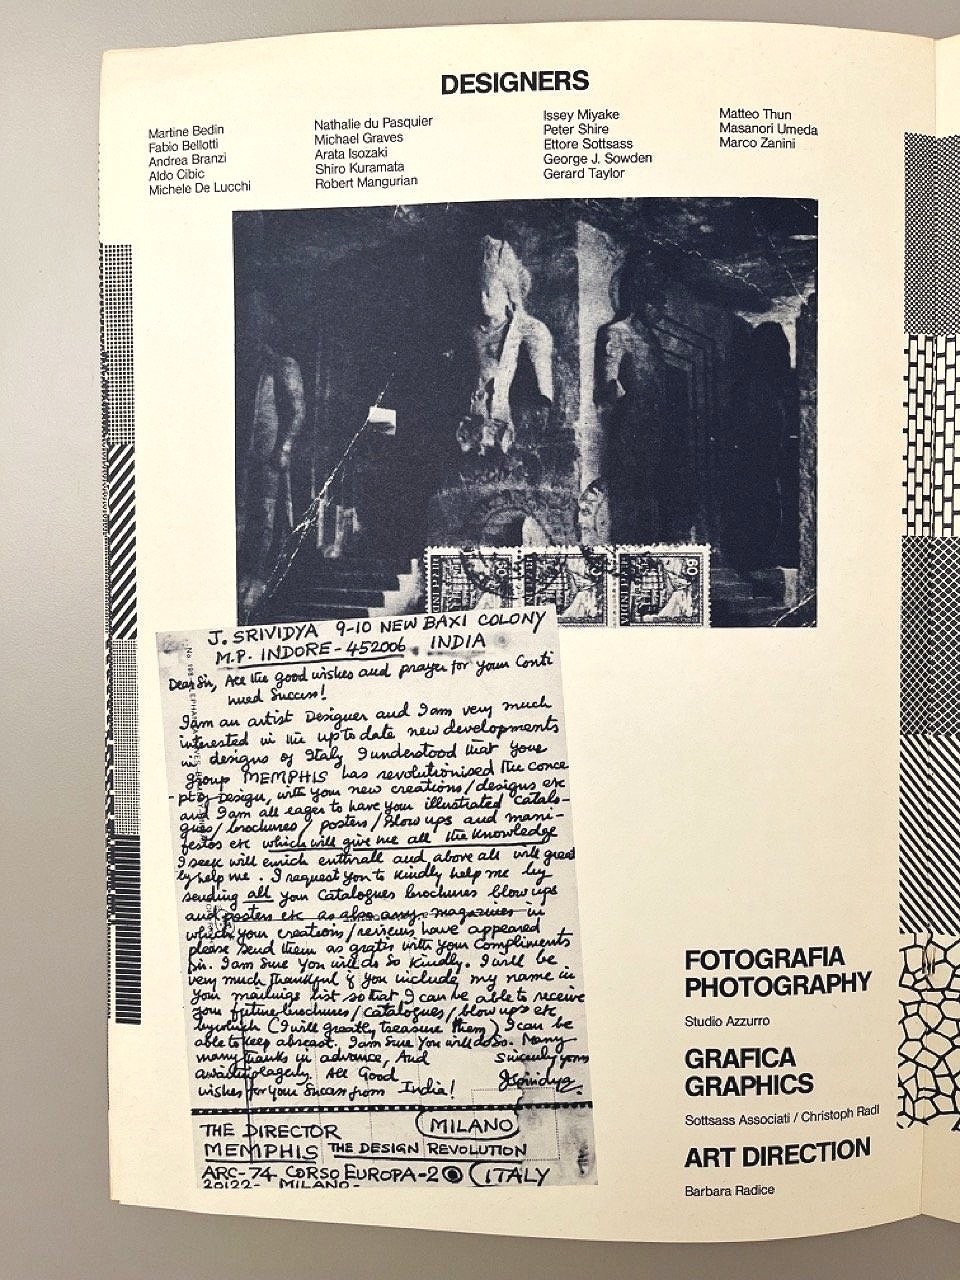 DESIGNERS
Martine Bedin
Fabio Bellotti
Andrea Branzi
Aldo Cibic
Michele De Lucchi
Nathalie du Pasquier
Michael Graves
Arata Isozaki
Shiro Kuramata
Robert Mangurian
Issey Miyake
Peter Shire
Ettore Sottsass
George J. Sowden
Gerard Taylor
Matteo Thun
Masanori Umeda
Marco Zanini
60
J. SRIVIDYA 9-10 NEW BAXI COLONY
M.P. INDORE-452006. INDIA
Dear Sir, All the good wishes and prayer for your Conti
nued Success!
I am an artist Designer and I am very much
interested in the up to date new developments
in designs of Italy I understood that your
group MEMPHIS has revolutionised the conce
-pt of Design, with your new creations/designs etc
and I am all eager to have your illustrated Catalo-
gues/brochures/posters/Blow ups and mani-
festos etc which will give me all the knowledge
I seek will enrich enthrall and above all will great
ly help me. I request you to kindly help me by
sending all your Catalogues brochures blow ups
and posters etc as also any magazines in
which your creations/reviews have appeared
please send them as gratis with your compliments
Sir. I am Sure you will do so kindly. I will be
very much thankful if you include my name in
your mailings list so that I can be able to receive
your future brochures/catalogues/blow ups etc
by which (I will greatly treasure them) I can be
able to keep abreast. I am Sure You will do So. Many
many thanks in advance, And Sincerely yours
awaiting eagerly. All Good JSrividya.
wishes for your Success from India!
THE DIRECTOR MILANO
MEMPHIS THE DESIGN REVOLUTION
ARC-74 CORSO EUROPA-2 ITALY
20122- MILANO-
FOTOGRAFIA
PHOTOGRAPHY
Studio Azzurro
GRAFICA
GRAPHICS
Sottsass Associati / Christoph Radl
ART DIRECTION
Barbara Radice